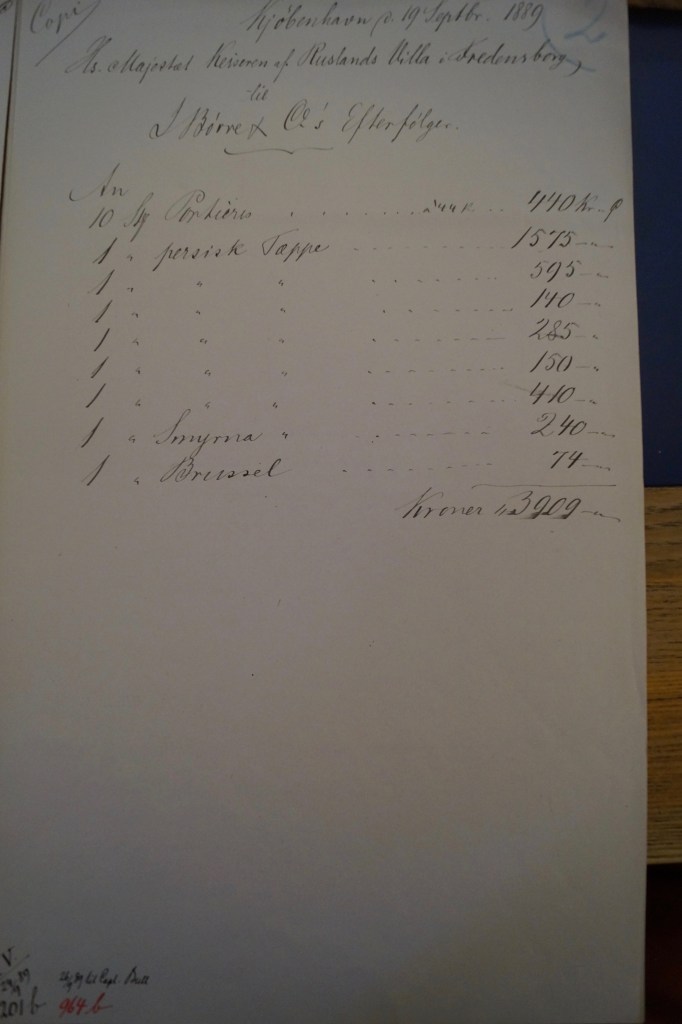 Copi
2
Kjöbenhavn d. 19 Septbr. 1889
Hs. Majestæt Keiseren af Ruslands Villa i Fredensborg,
til
I Börre & Co's Efterfølger.
An
10 Stk Portières . . . . . à 44 K . . 440 Kr. - Ø
1 " persisk Tæppe - - - - - - 1575 - "
1 " " " . - - - - - - 595 - "
1 " " " . - - - - - - 140 - "
1 " " " . - - - - - - 285 - "
1 " " " . - - - - - - 150 - "
1 " " " . - - - - - - 410 - "
1 " Smyrna " . - - - - - - 240 - "
1 " Brussel . - - - - - - 74 - "
Kroner 3909 - "
V
29/9 89
201 b
til Capt. Bull
964 b